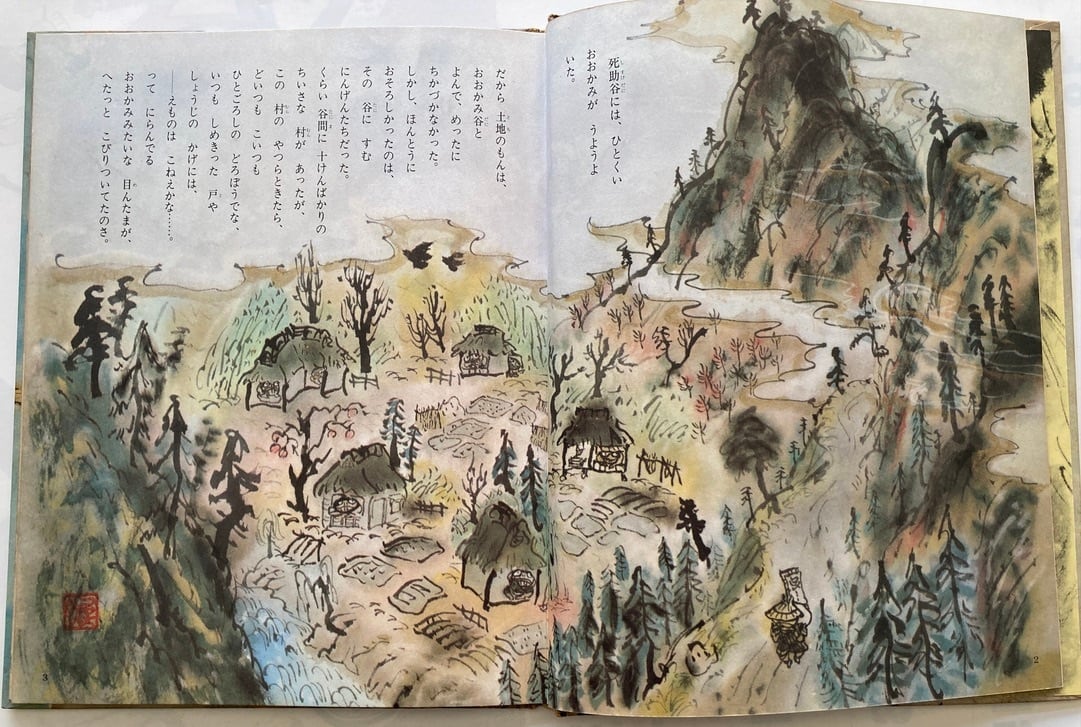 死助谷には、ひとくい
おおかみが　うようよ
いた。
だから　土地のもんは、
おおかみ谷と
よんで、めったに
ちかづかなかった。
しかし、ほんとうに
おそろしかったのは、
その　谷に　すむ
にんげんたちだった。
くらい　谷間に　十けんばかりの
ちいさな　村が　あったが、
この　村の　やつらときたら、
どいつも　こいつも
ひとごろしの　どろぼうでな、
いつも　しめきった　戸や
しょうじの　かげには、
――えものは　こねえかな……。
って　にらんでる
おおかみみたいな　目んたまが、
へたっと　こびりついてたのさ。
2
3